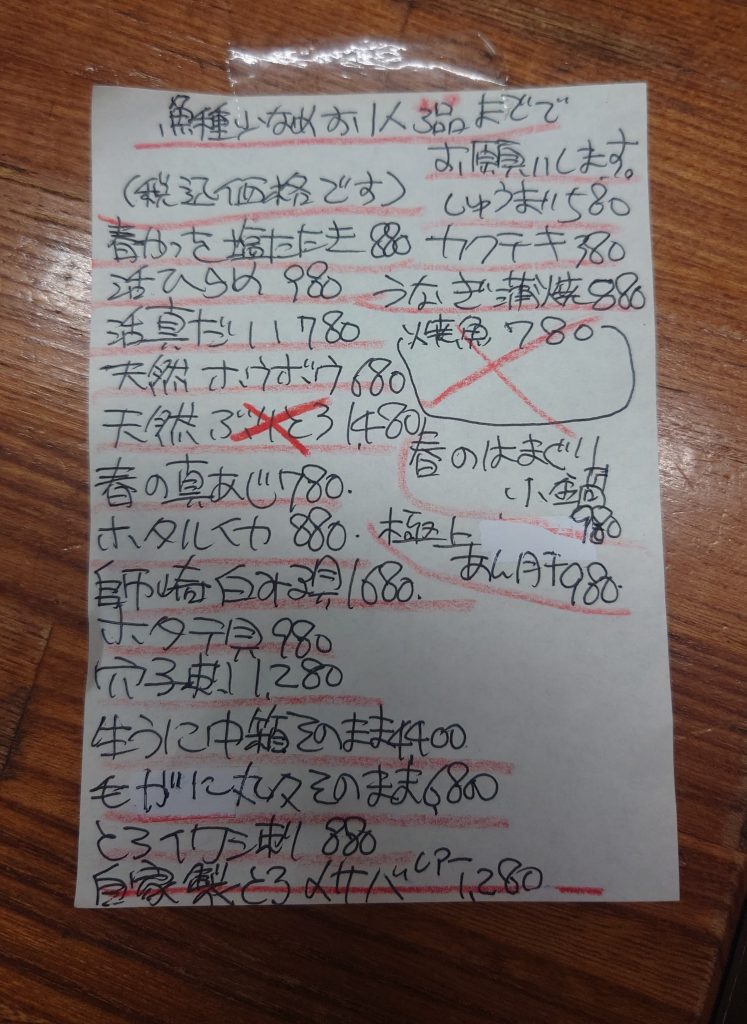 魚種少なめお1人3品までで
お願いします。
(税込価格です)
春かつを塩たたき 880
活ひらめ 980
活真だい 1780
天然ホウボウ 680
天然ぶりとろ 1,480
春の真あじ 780.
ホタルイカ 880.
師崎白みる貝 1,680.
ホタテ貝 980
穴子刺し 1,280
生うに中箱そのまま 4,400
毛がに丸々そのまま 6,800
とろイワシ刺し 880
自家製とろメサバ 1,280
しゅうまい 580
カクテキ 380
うなぎ蒲焼 880
焼魚 780
春のはまぐり
小鍋
980
極上
あん肝 980.